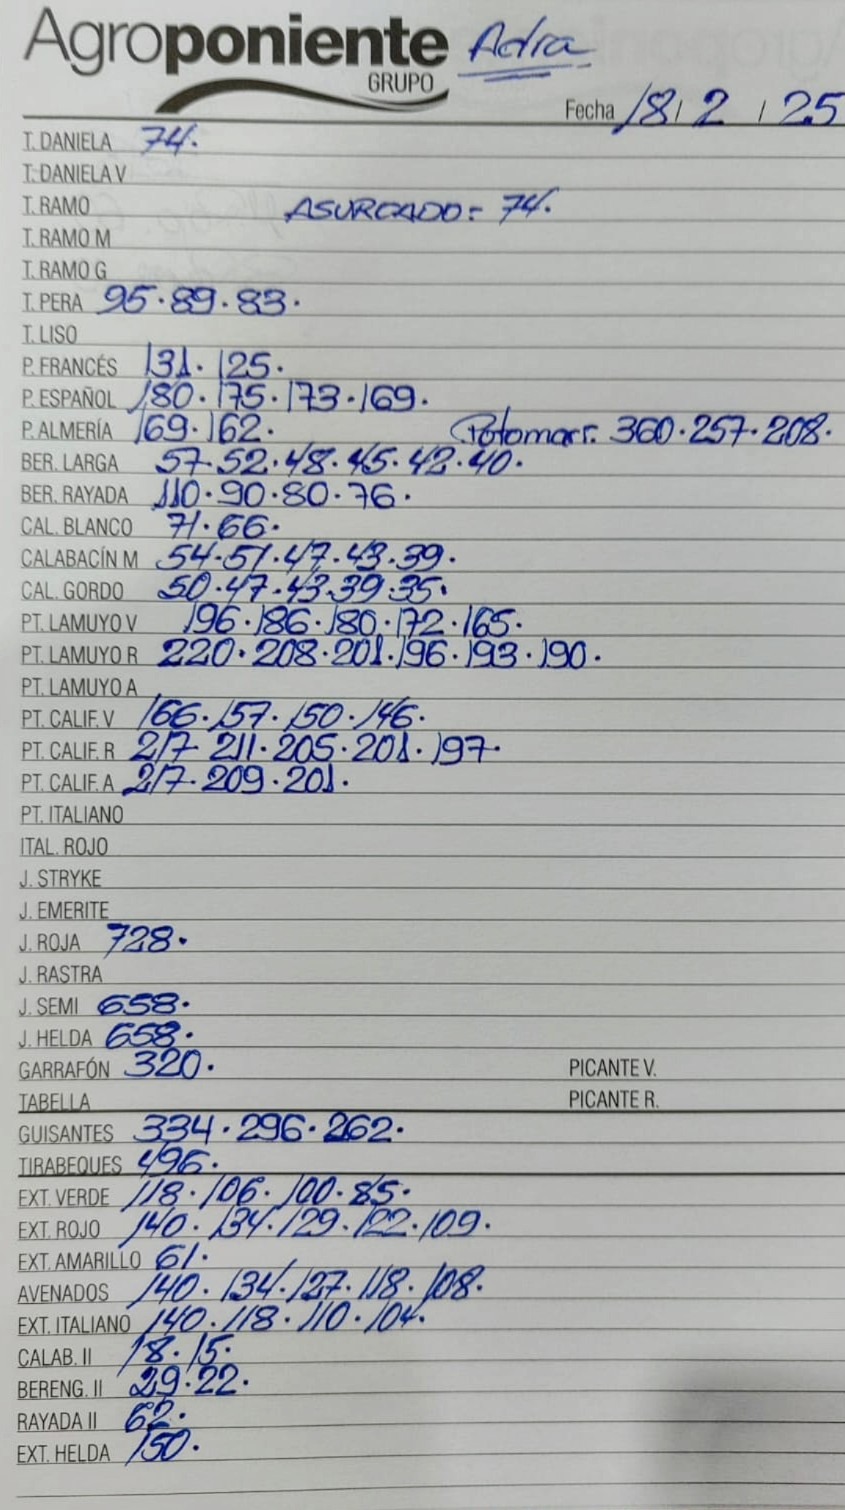 Agroponiente Adra
GRUPO
Fecha 18 / 2 / 25
T. DANIELA 74.
T. DANELA V
T. RAMO ASURCADO = 74.
T. RAMO M
T. RAMO G
T. PERA 95.89.83.
T. LISO
P. FRANCÉS 131.125.
P. ESPAÑOL 180.175.173.169.
P. ALMERÍA 169.162. Potomarr. 360.257.208.
BER. LARGA 57.52.48.45.42.40.
BER. RAYADA 110.90.80.76.
CAL. BLANCO 71.66.
CALABACÍN M 54.51.47.43.39.
CAL. GORDO 50.47.43.39.35.
PT. LAMUYO V 196.186.180.172.165.
PT. LAMUYO R 220.208.201.196.193.190.
PT. LAMUYO A
PT. CALIF. V 166.157.150.146.
PT. CALIF. R 217.211.205.201.197.
PT. CALIF. A 217.209.201.
PT. ITALIANO
ITAL. ROJO
J. STRYKE
J. EMERITE
J. ROJA 728.
J. RASTRA
J. SEMI 658.
J. HELDA 658.
GARRAFÓN 320. PICANTE V.
TABELLA PICANTE R.
GUISANTES 334.296.262.
TIRABEQUES 496.
EXT. VERDE 118.106.100.85.
EXT. ROJO 140.134.129.122.109.
EXT. AMARILLO 61.
AVENADOS 140.134.127.118.108.
EXT. ITALIANO 140.118.110.104.
CALAB. II 18.15.
BERENG. II 29.22.
RAYADA II 62.
EXT. HELDA 150.